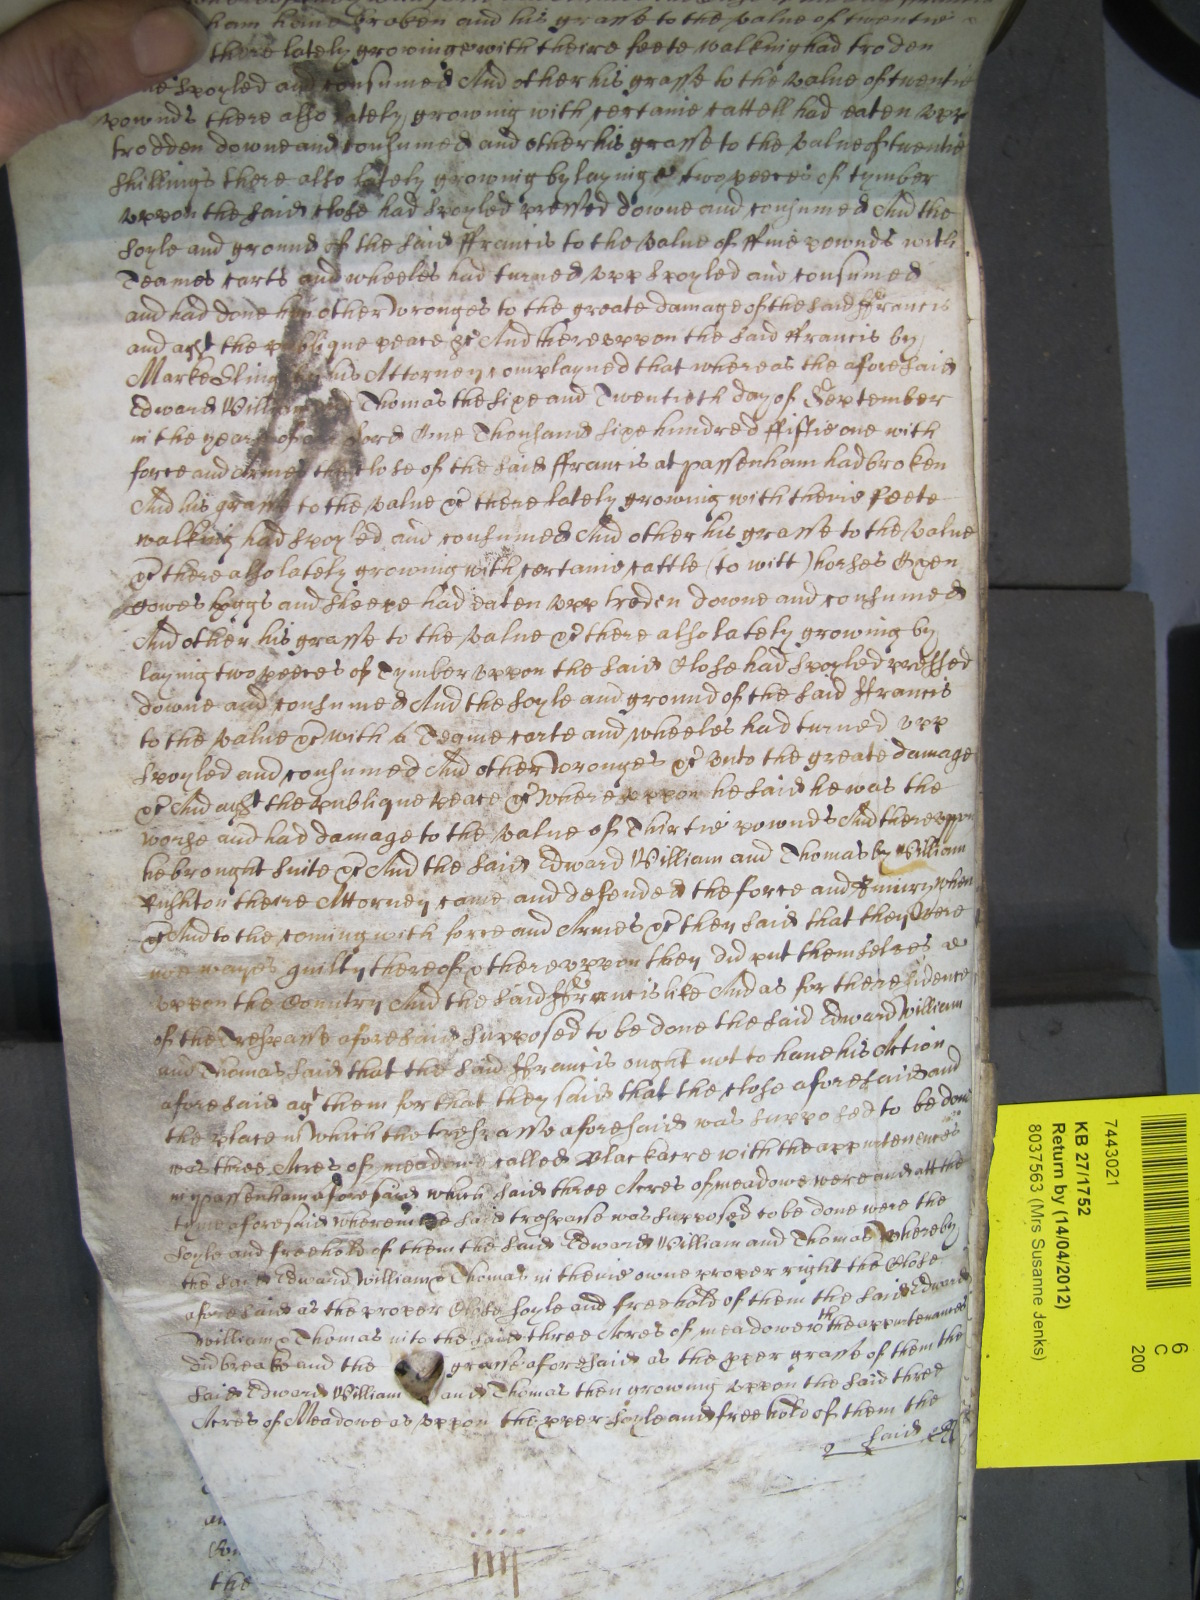 ham have broken and his grasse to the value of twentie
there lately growinge with theire feete walking had troden
spoyled and consumed And other his grasse to the value of twentie
pownds there also lately growing with certaine cattell had eaten upp
trodden downe and consumed and other his grasse to the value of twentie
shillings there also lately growing by laying two peeces of tymber
uppon the said close had spoyled pressed downe and consumed And the
soyle and ground of the said ffrancis to the value of ffive pownds with
Teames carts and wheeles had turned upp spoyled and consumed
and had done him other wronges to the greate damage of the said ffrancis
and agt the publique peace &c And hereuppon the said ffrancis by
Marke his Attorney complayned that whereas the aforesaid
Edward William and Thomas the sixe and Twentieth day of September
in the yeare of our Lord One Thousand sixe hundred ffiftie one with
force and Armes the close of the said ffrancis at passenham had broken
And his grasse to the value &c there lately growing with theire feete
walking had spoyled and consumed And other his grasse to the value
&c there also lately growing with certaine cattle (to witt) horses Oxen
Cowes hoggs and sheepe had eaten upp troden downe and consumed
And other his grasse to the value &c there also lately growing by
laying two peeces of Tymber uppon the said Close had spoyled pressed
downe and consumed And the soyle and ground of the said ffrancis
to the value &c with a Teame carte and wheeles had turned upp
spoyled and consumed And other wronges &c unto the greate damage
&c And agt the publique peace &c Whereuppon he said he was the
worse and had damage to the value of Thirtie pownds And thereuppon
he brought suite &c And the said Edward William and Thomas by William
Rushton theire Attorney came and defended the force and Iniury when
&c And to the coming with force and Armes &c they said that they were
noe wayes guilty thereof & thereuppon they did put themselves
uppon the Country And the said ffrancis like And as for the residence
of the Trespasse aforesaid supposed to be done the said Edward William
and Thomas said that the said ffrancis ought not to have his Action
aforesaid agt them for that they said that the close aforesaid and
the place in which the trespasse aforesaid was supposed to be done
was three Acres of meadowe called Blackacre with the appurtenences
in passenham aforesaid which said three Acres of meadowe were and att the
tyme aforesaid wherein the said trespasse was supposed to be done were the
soyle and freehold of them the said Edward William and Thomas Whereby
the said Edward William & Thomas in theire owne proper right the Close
aforesaid as the proper Close soyle and freehold of them the said Edward
William & Thomas into the said three Acres of meadowe wth the appurtenances
did breake and the grasse aforesaid as the pper grasse of them the
said Edward William and Thomas then growing uppon the said three
Acres of Meadowe as uppon the pper soyle and freehold of them the
said
iiij
the
7443021
KB 27/1752
Return by (14/04/2012)
8037563 (Mrs Susanne Jenks)
6
C
200